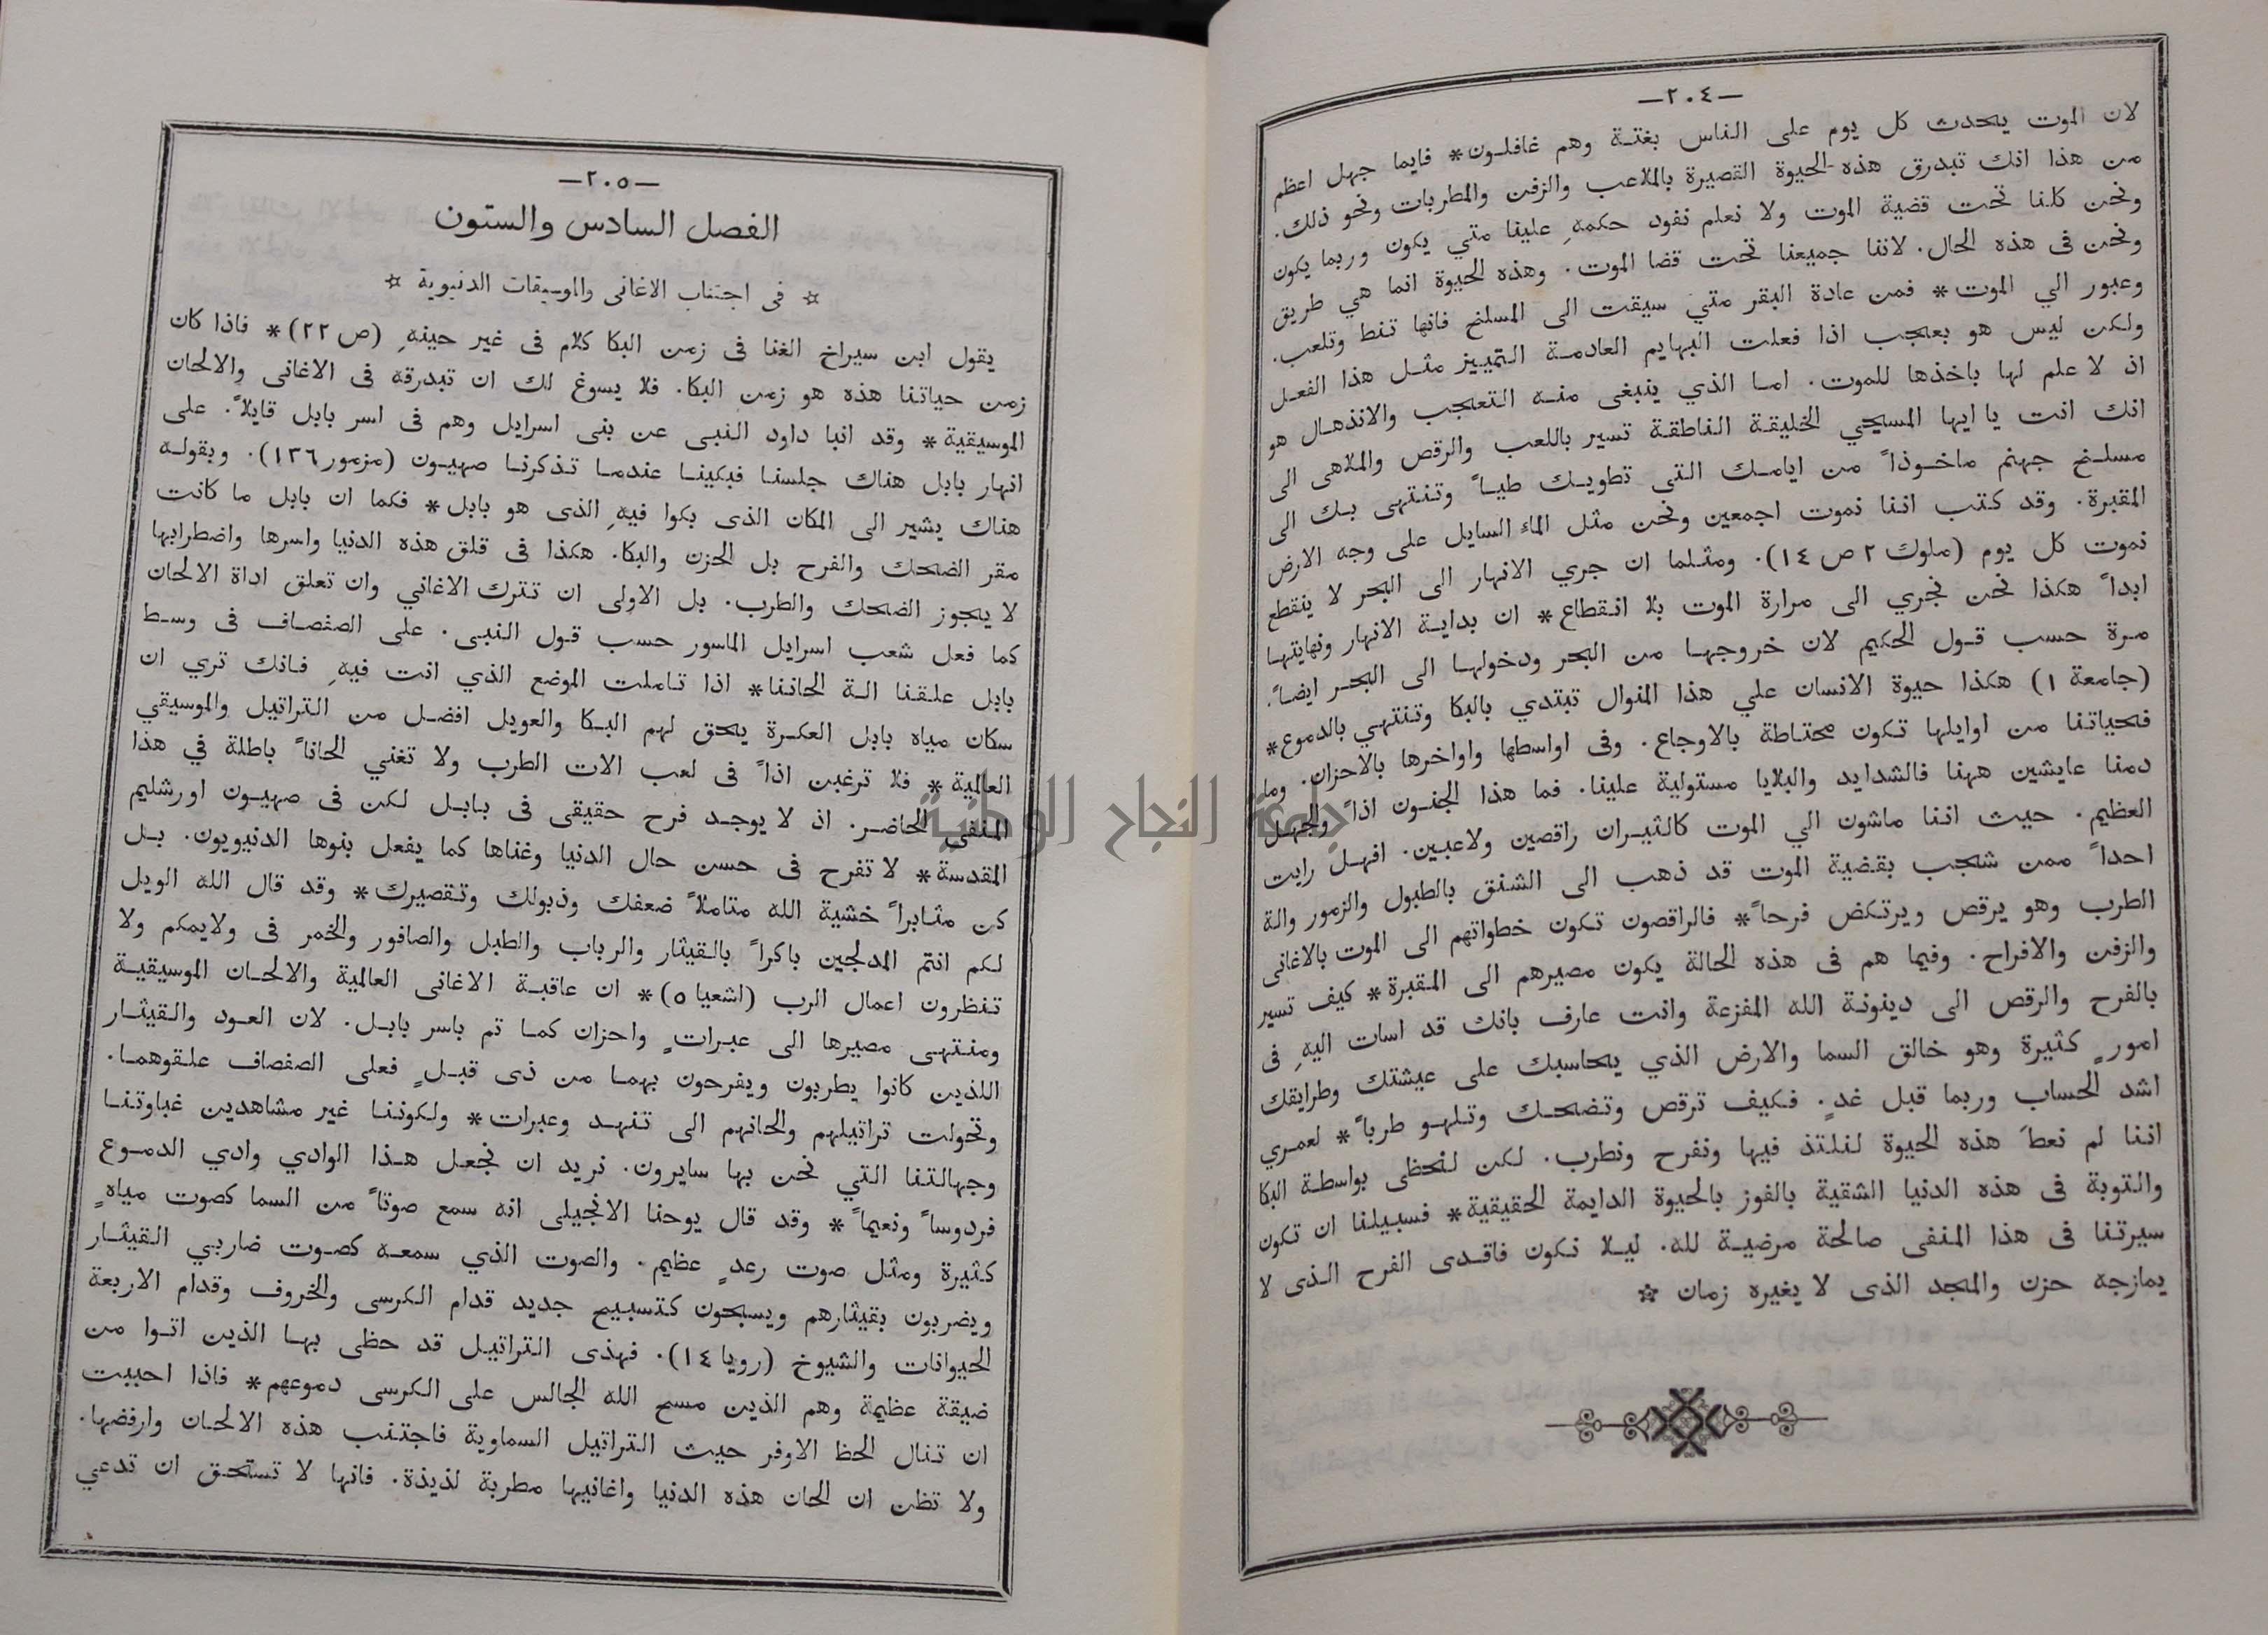 —٢٠٤—
لان الموت يحدث كل يوم على الناس بغتة وهم غافلون* فايما جهل اعظم
من هذا انك تبدرق هذه الحيوة القصيرة بالملاعب والزفن والمطربات ونحو ذلك.
ونحن كلنا تحت قضية الموت ولا نعلم نفود حكمهِ علينا متي يكون وربما يكون
ونحن فى هذه الحال. لاننا جميعنا تحت قضا الموت. وهذه الحيوة انما هي طريق
وعبور الي الموت* فمن عادة البقر متي سيقت الى المسلخ فانها تنط وتلعب.
ولكن ليس هو بعجب اذا فعلت البهايم العادمة التمييز مثل هذا الفعل
اذ لا علم لها باخذها للموت. اما الذي ينبغى منه التعجب والانذهال هو
انك انت يا ايها المسيحي الخليقة الناطقة تسير باللعب والرقص والملاهى الى
مسلخ جهنم ماخوذاً من ايامك التى تطويك طياً وتنتهى بك الى
المقبرة. وقد كتب اننا نموت اجمعين ونحن مثل الماء السايل على وجه الارض
نموت كل يوم (ملوك ٢ ص ١٤). ومثلما ان جري الانهار الى البحر لا ينقطع
ابداً هكذا نحن نجري الى مرارة الموت بلا انقطاع* ان بداية الانهار ونهايتها
مرة حسب قول الحكيم لان خروجها من البحر ودخولها الى البحر ايضاً.
(جامعة ١) هكذا حيوة الانسان علي هذا المنوال تبتدي بالبكا وتنتهي بالدموع*
فحياتنا من اوايلها تكون محتاطة بالاوجاع. وفى اواسطها واواخرها بالاحزان. وما
دمنا عايشين ههنا فالشدايد والبلايا مستولية علينا. فما هذا الجنون اذاً والجهل
العظيم. حيث اننا ماشون الي الموت كالثيران راقصين ولاعبين. افهل رايت
احداً ممن شجب بقضية الموت قد ذهب الى الشنق بالطبول والزمور والة
الطرب وهو يرقص ويرتكض فرحاً* فالراقصون تكون خطواتهم الى الموت بالاغانى
والزفن والافراح. وفيما هم فى هذه الحالة يكون مصيرهم الى المقبرة* كيف تسير
بالفرح والرقص الى دينونة الله المفزعة وانت عارف بانك قد اسات اليهِ فى
امورٍ كثيرة وهو خالق السما والارض الذي يحاسبك على عيشتك وطرايقك
اشد الحساب وربما قبل غدٍ. فكيف ترقص وتضحك وتلهو طرباً* لعمري
اننا لم نعطَ هذه الحيوة لنلتذ فيها ونفرح ونطرب. لكن لنحظى بواسطة البكا
والتوبة فى هذه الدنيا الشقية بالفوز بالحيوة الدايمة الحقيقية* فسبيلنا ان تكون
سيرتنا فى هذا المنفى صالحة مرضية لله. ليلا نكون فاقدى الفرح الذى لا
يمازجه حزن والمجد الذى لا يغيره زمان ✩
—٢٠٥—
الفصل السادس والستون
✩ فى اجتناب الاغانى والموسيقات الدنيوية ✩
يقول ابن سيراخ الغنا فى زمن البكا كلام فى غير حينهِ (ص ٢٢)* فاذا كان
زمن حياتنا هذه هو زمن البكا. فلا يسوغ لك ان تبدرقه فى الاغانى والالحان
الموسيقية* وقد انبا داود النبى عن بنى اسرايل وهم فى اسر بابل قايلاً. على
انهار بابل هناك جلسنا فبكينا عندما تذكرنا صهيون (مزمور ١٣٦). وبقوله
هناك يشير الى المكان الذى بكوا فيهِ الذى هو بابل* فكما ان بابل ما كانت
مقر الضحك والفرح بل الحزن والبكا. هكذا فى قلق هذه الدنيا واسرها واضطرابها
لا يجوز الضحك والطرب. بل الاولى ان تترك الاغاني وان تعلق اداة الالحان
كما فعل شعب اسرايل الماسور حسب قول النبى. على الصفصاف فى وسط
بابل علقنا الة الحاننا* اذا تاملت الموضع الذي انت فيهِ فانك تري ان
سكان مياه بابل العكرة يحق لهم البكا والعويل افضل من التراتيل والموسيقي
العالمية* فلا ترغبن اذاً فى لعب الات الطرب ولا تغني الحاناً باطلة في هذا
المنفى الحاضر. اذ لا يوجد فرح حقيقى فى بابل لكن فى صهيون اورشليم
المقدسة* لا تفرح فى حسن حال الدنيا وغناها كما يفعل بنوها الدنيويون. بل
كن مثابراً خشية الله متاملاً ضعفك وذبولك وتقصيرك* وقد قال الله الويل
لكم انتم المدلجين باكراً بالقيثار والرباب والطبل والصافور والخمر فى ولايمكم ولا
تنظرون اعمال الرب (اشعيا ٥)* ان عاقبة الاغانى العالمية والالحان الموسيقية
ومنتهى مصيرها الى عبراتٍ واحزان كما تم باسر بابل. لان العود والقيثار
اللذين كانوا يطربون ويفرحون بهما من ذى قبلٍ فعلى الصفصاف علقوهما.
وتحولت تراتيلهم والحانهم الى تنهد وعبرات* ولكوننا غير مشاهدين غباوتنا
وجهالتنا التي نحن بها سايرون. نريد ان نجعل هذا الوادي وادي الدموع
فردوساً ونعيماً* وقد قال يوحنا الانجيلى انه سمع صوتاً من السما كصوت مياهٍ
كثيرة ومثل صوت رعدٍ عظيم. والصوت الذي سمعه كصوت ضاربي القيثار
ويضربون بقيثارهم ويسبحون كتسبيح جديد قدام الكرسى والخروف وقدام الاربعة
الحيوانات والشيوخ (رويا ١٤). فهذى التراتيل قد حظى بها الذين اتوا من
ضيقة عظيمة وهم الذين مسح الله الجالس على الكرسى دموعهم* فاذا احببت
ان تنال الحظ الاوفر حيث التراتيل السماوية فاجتنب هذه الالحان وارفضها.
ولا تظن ان الحان هذه الدنيا واغانيها مطربة لذيذة. فانها لا تستحق ان تدعي
جامعة النجاح الوطنية